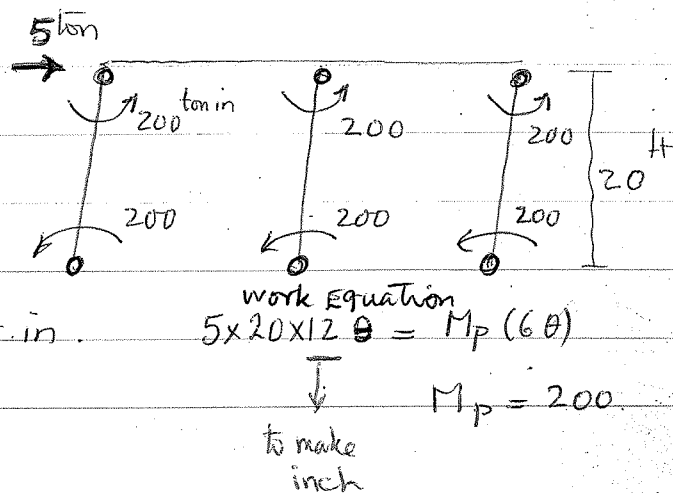 5 ton
200 ton in
200
200
20 ft
200
200
200
work Equation
in.
5x20x12 θ = Mp (6 θ)
Mp = 200.
to make
inch